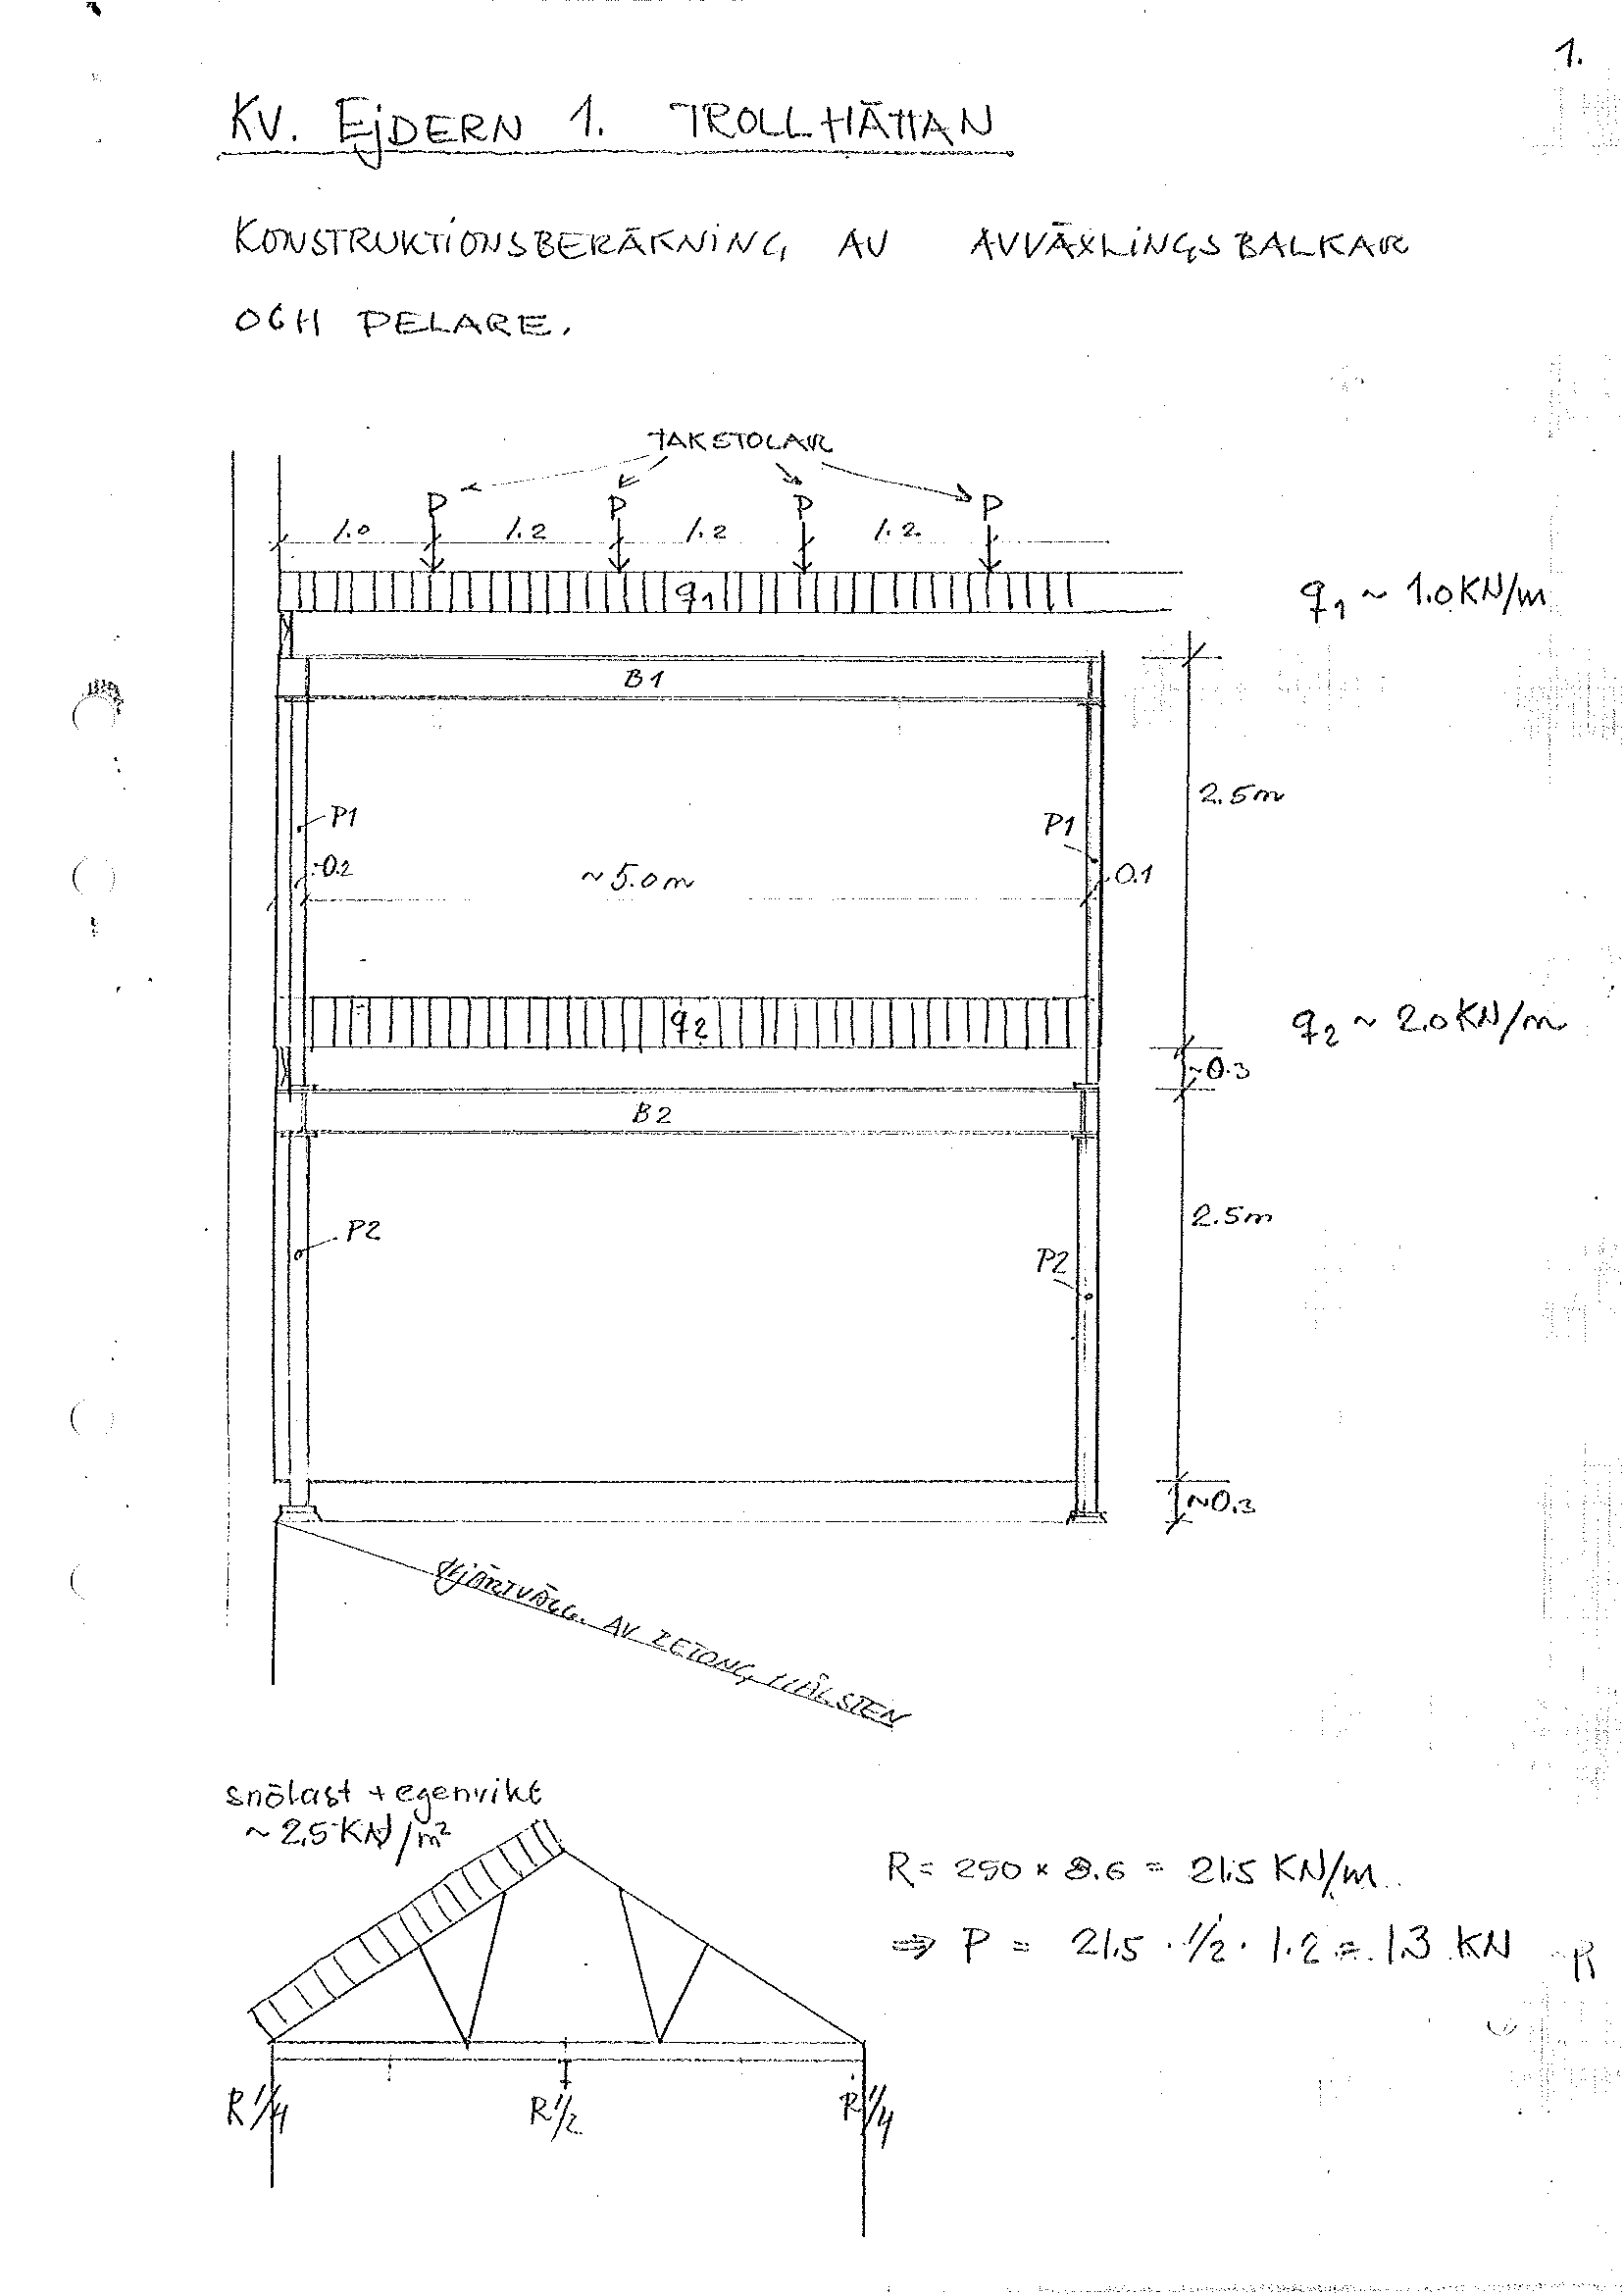 1.
KV. EjDERN 1. TROLLHÄTTAN
KONSTRUKTIONSBERÄKNING AV AVVÄXLINGSBALKAR
OCH PELARE.
TAKSTOLAR
P P P P
1.0 1.2 1.2 1.2.
q1
q1 ~ 1.0 KN/m
B1
2.5m
P1
P1
0.2
~5.0m
0.1
q2
q2 ~ 2.0 KN/m
~0.3
B2
2.5m
P2
P2
~0.3
HJÄRTVÄGG. AV BETONG, HÅLSTEN
snölast + egenvikt
~ 2,5 KN/m²
R = 250 × 8.6 = 21,5 KN/m
⇒ P = 21,5 · 1/2 · 1.2 = 13 KN
R
R 1/4
R 1/2
R 1/4